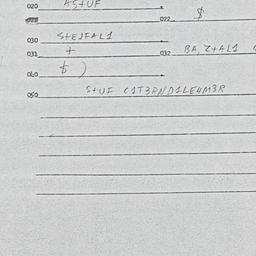 020 AStUF
022 $
030 StEJFAL1
031 + 032 BA, Z+AL1
040 $ )
050 StUF C1T3RN/D1LE4M3R